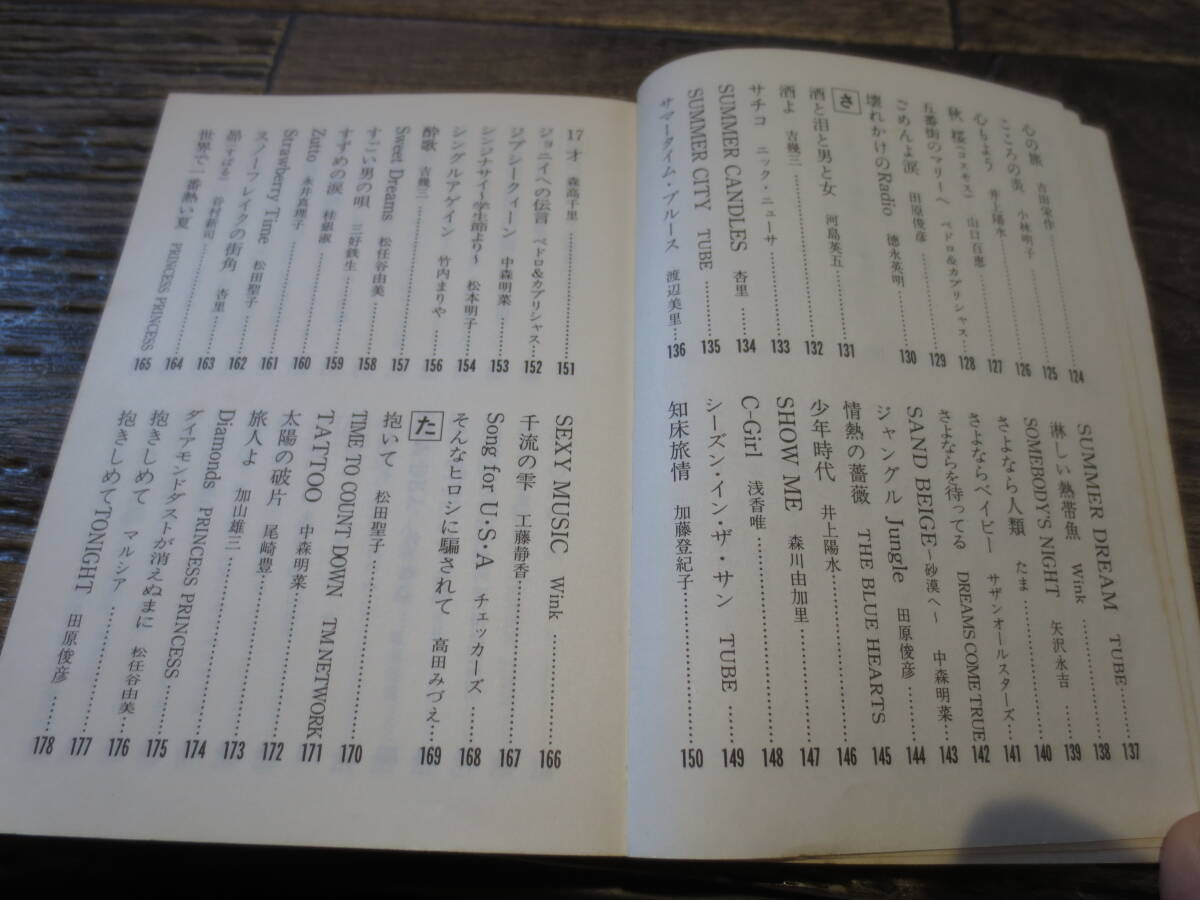 心の旅 吉田栄作 124
こころの炎 小林明子 125
心もよう 井上陽水 126
秋桜(コスモス) 山口百恵 127
五番街のマリーへ ペドロ&カプリシャス 128
ごめんよ涙 田原俊彦 129
壊れかけのRadio 徳永英明 130
さ
酒と泪と男と女 河島英五 131
酒よ 吉幾三 132
サチコ ニック・ニューサ 133
SUMMER CANDLES 杏里 134
SUMMER CITY TUBE 135
サマータイム・ブルース 渡辺美里 136
SUMMER DREAM TUBE 137
淋しい熱帯魚 Wink 138
SOMEBODY'S NIGHT 矢沢永吉 139
さよなら人類 たま 140
さよならベイビー サザンオールスターズ 141
さよならを待ってる DREAMS COME TRUE 142
SAND BEIGE〜砂漠へ〜 中森明菜 143
ジャングル Jungle 田原俊彦 144
情熱の薔薇 THE BLUE HEARTS 145
少年時代 井上陽水 146
SHOW ME 森川由加里 147
C-Girl 浅香唯 148
シーズン・イン・ザ・サン TUBE 149
知床旅情 加藤登紀子 150
17才 森高千里 151
ジョニイへの伝言 ペドロ&カプリシャス 152
ジプシー・クィーン 中森明菜 153
松本明子 154
シングルアゲイン 竹内まりや
酔歌 吉幾三 156
Sweet Dreams 松任谷由美 157
すごい男の唄 三好鉄生 158
すずめの涙 桂銀淑 159
Zutto 永井真理子 160
Strawberry Time 松田聖子 161
スノーフレイクの街角 杏里 162
昴(すばる) 谷村新司 163
世界で一番熱い夏 PRINCESS PRINCESS 164
165
SEXY MUSIC Wink 166
千流の雫 工藤静香 167
Song for U・S・A チェッカーズ 168
そんなヒロシに騙されて 高田みづえ 169
た
抱いて 松田聖子 170
TIME TO COUNT DOWN TM NETWORK 171
TATTOO 中森明菜 172
太陽の破片 尾崎豊 173
旅人よ 加山雄三 174
Diamonds PRINCESS PRINCESS 175
ダイアモンドダストが消えぬまに 松任谷由美 176
抱きしめて マルシア 177
抱きしめてTONIGHT 田原俊彦 178